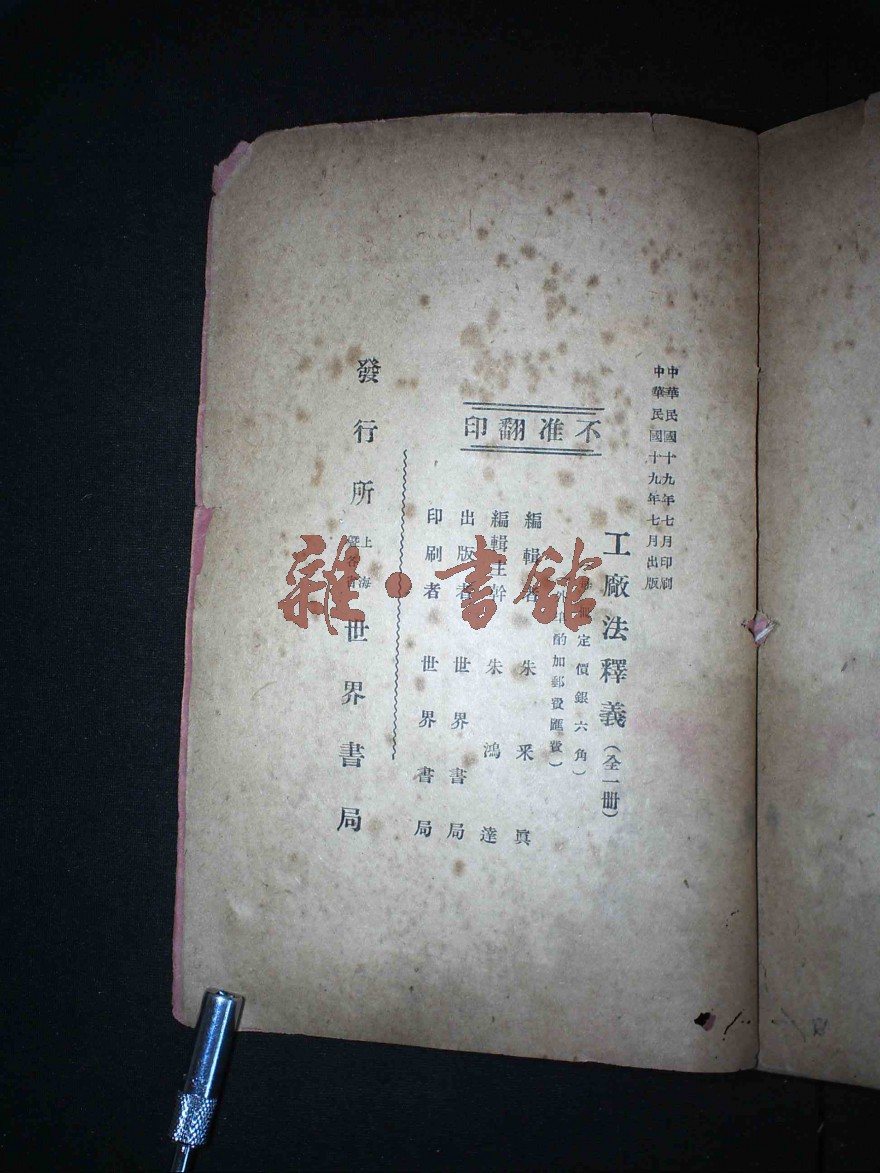 中華民國十九年七月印刷
中華民國十九年七月出版
工廠法釋義（全一冊）
定價銀六角）
外埠酌加郵費匯費）
不准翻印
編輯者 朱采真
編輯主幹 朱鴻達
出版者 世界書局
印刷者 世界書局
發行所 上海 世界書局
雜·書館